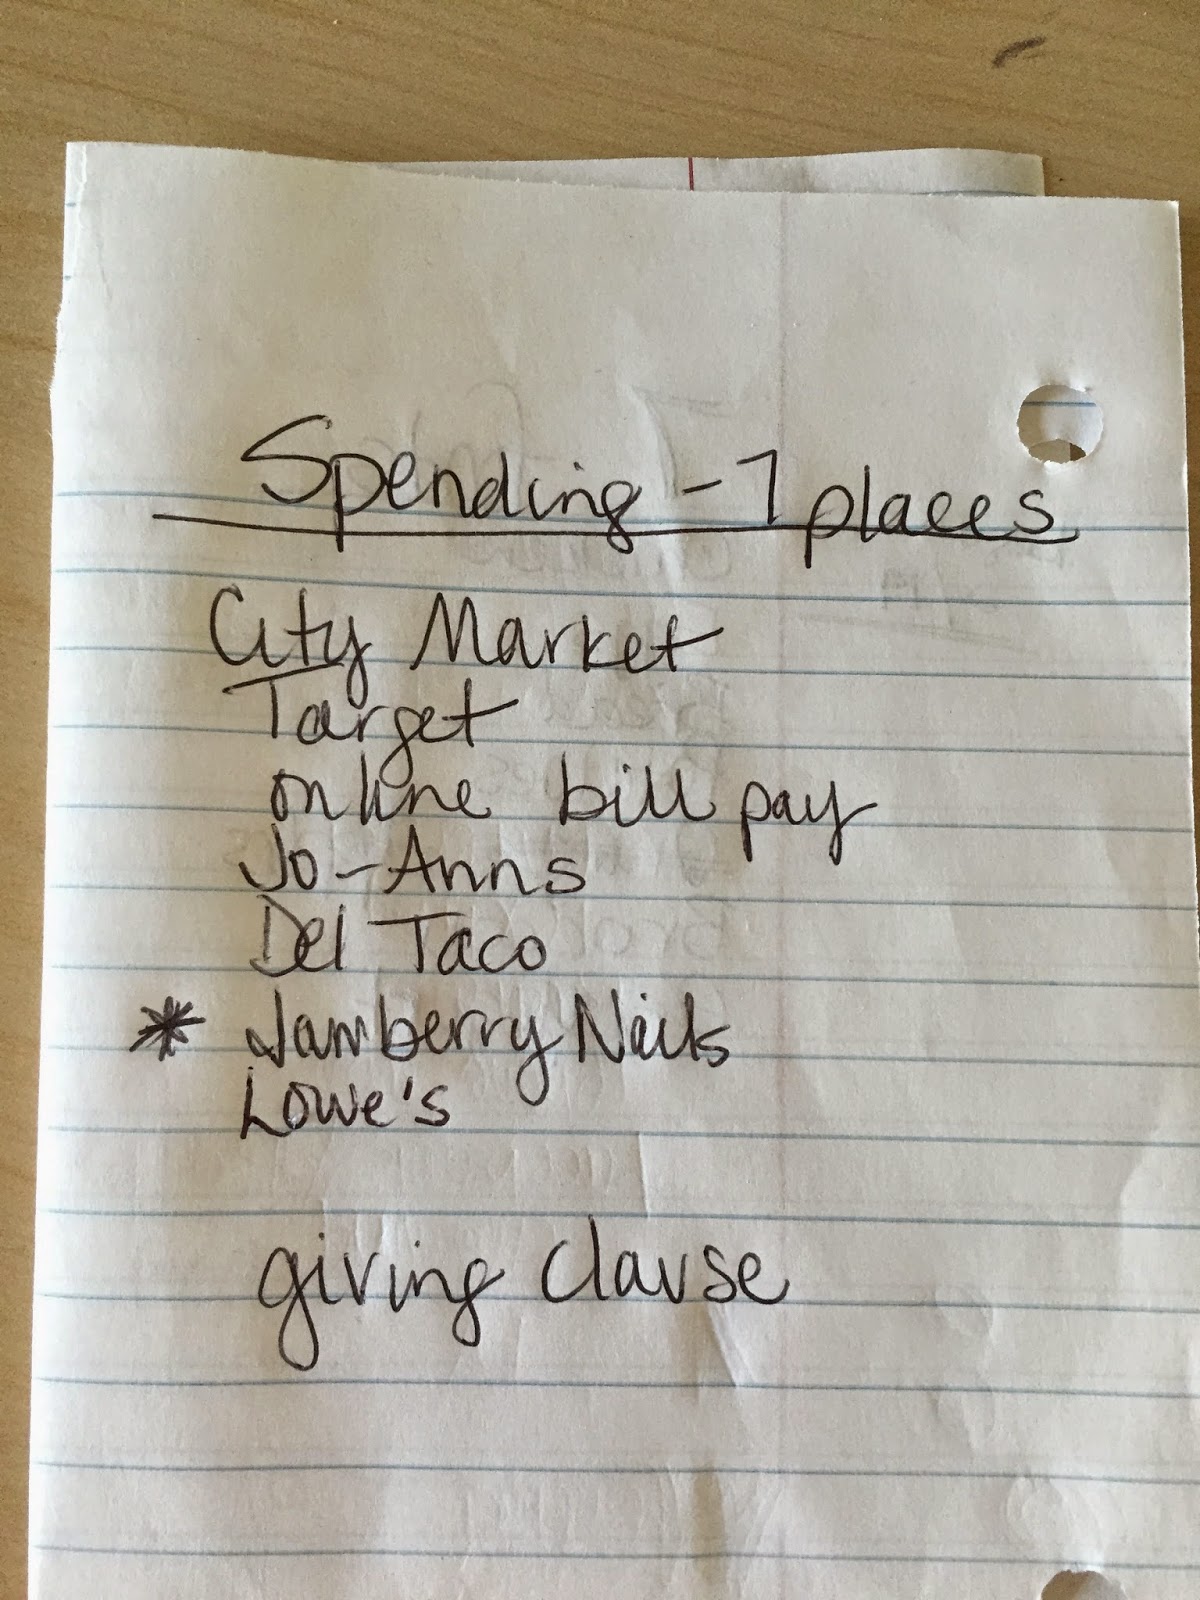 Spending - 7 places
City Market
Target
online bill pay
Jo-Anns
Del Taco
* Jamberry Nails
Lowe's
giving clause